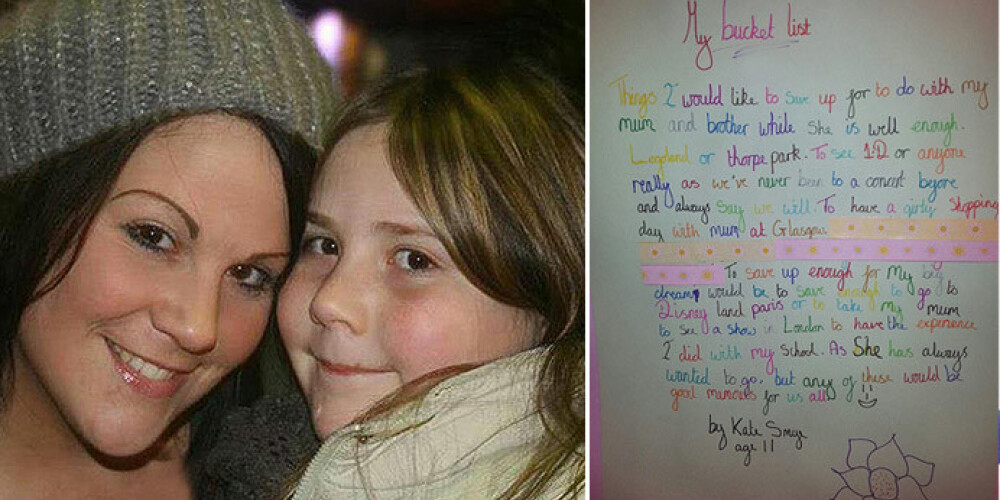 My bucket list
Things I would like to save up for to do with my
mum and brother while she is well enough.
Legoland or thorpe park. To see 1D or anyone
really as we've never been to a concert before
and always say we will. To have a girly shopping
day with mum at Glasgow
To save up enough for my big
dream would be to save enough to go to
Disney land paris or to take my mum
to see a show in London to have the experience
I did with my School. As She has always
wanted to go, but any of these would be
good memories for us all
by Kate
age 11